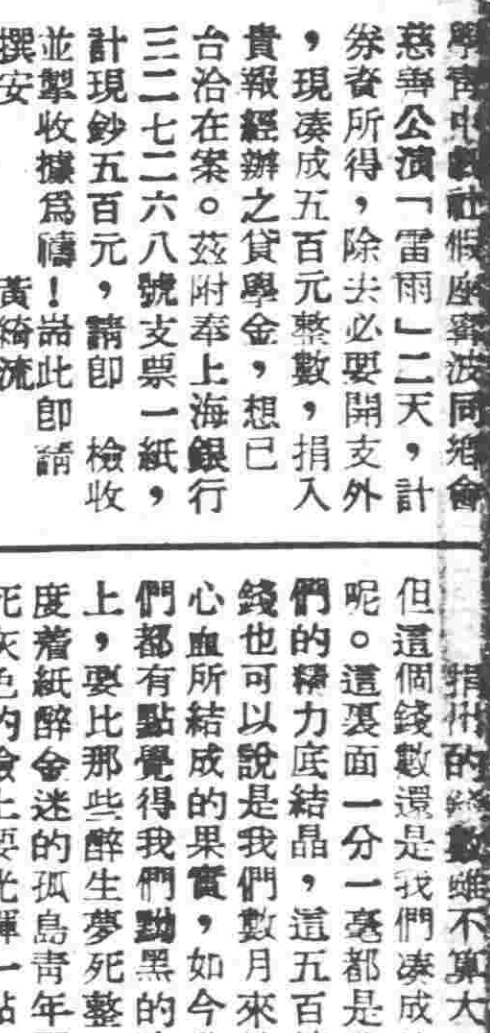 學青中劇社假座寗波同鄉會
慈善公演「雷雨」二天，計
券資所得，除去必要開支外
，現湊成五百元整數，捐入
貴報經辦之貸學金，想已
台洽在案。茲附奉上海銀行
三二七二六八號支票一紙，
計現鈔五百元，請卽　檢收
並掣收據爲禱！耑此卽請
撰安　　　　黃綺流
捐出的錢數雖不算大
但這個錢數還是我們湊成
呢。這裏面一分一毫都是
們的精力底結晶，這五百
錢也可以說是我們數月來
心血所結成的果實，如今
們都有點覺得我們黝黑的
上，要比那些醉生夢死整
度着紙醉金迷的孤島青年
死灰色的臉上要光輝一點